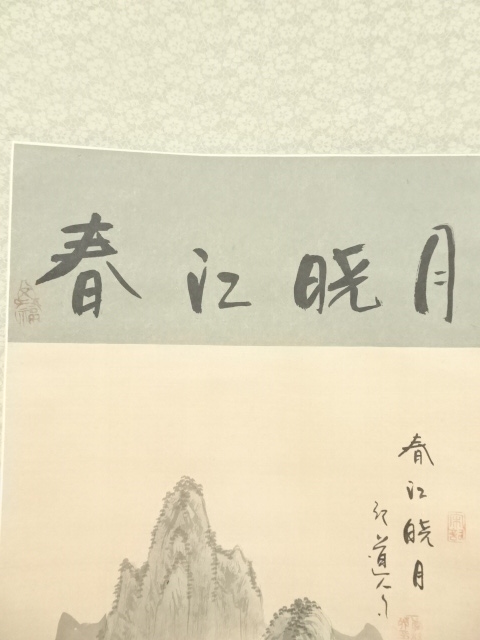 春江暁月
春江暁月
道人